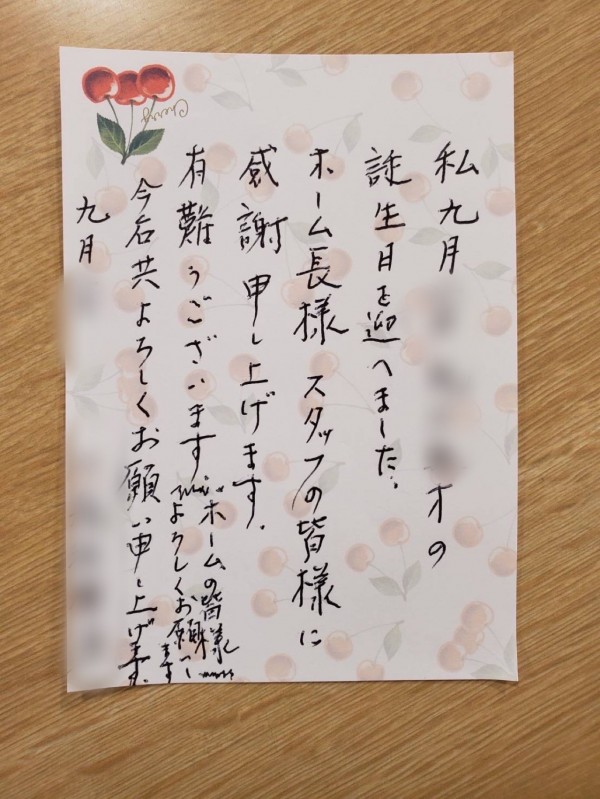 私九月
才の
誕生日を迎へました。
ホーム長様 スタッフの皆様に
感謝申し上げます。
有難うございます
ホームの皆様
よろしくお願いします
今后共よろしくお願い申し上げます。
九月
Cherry